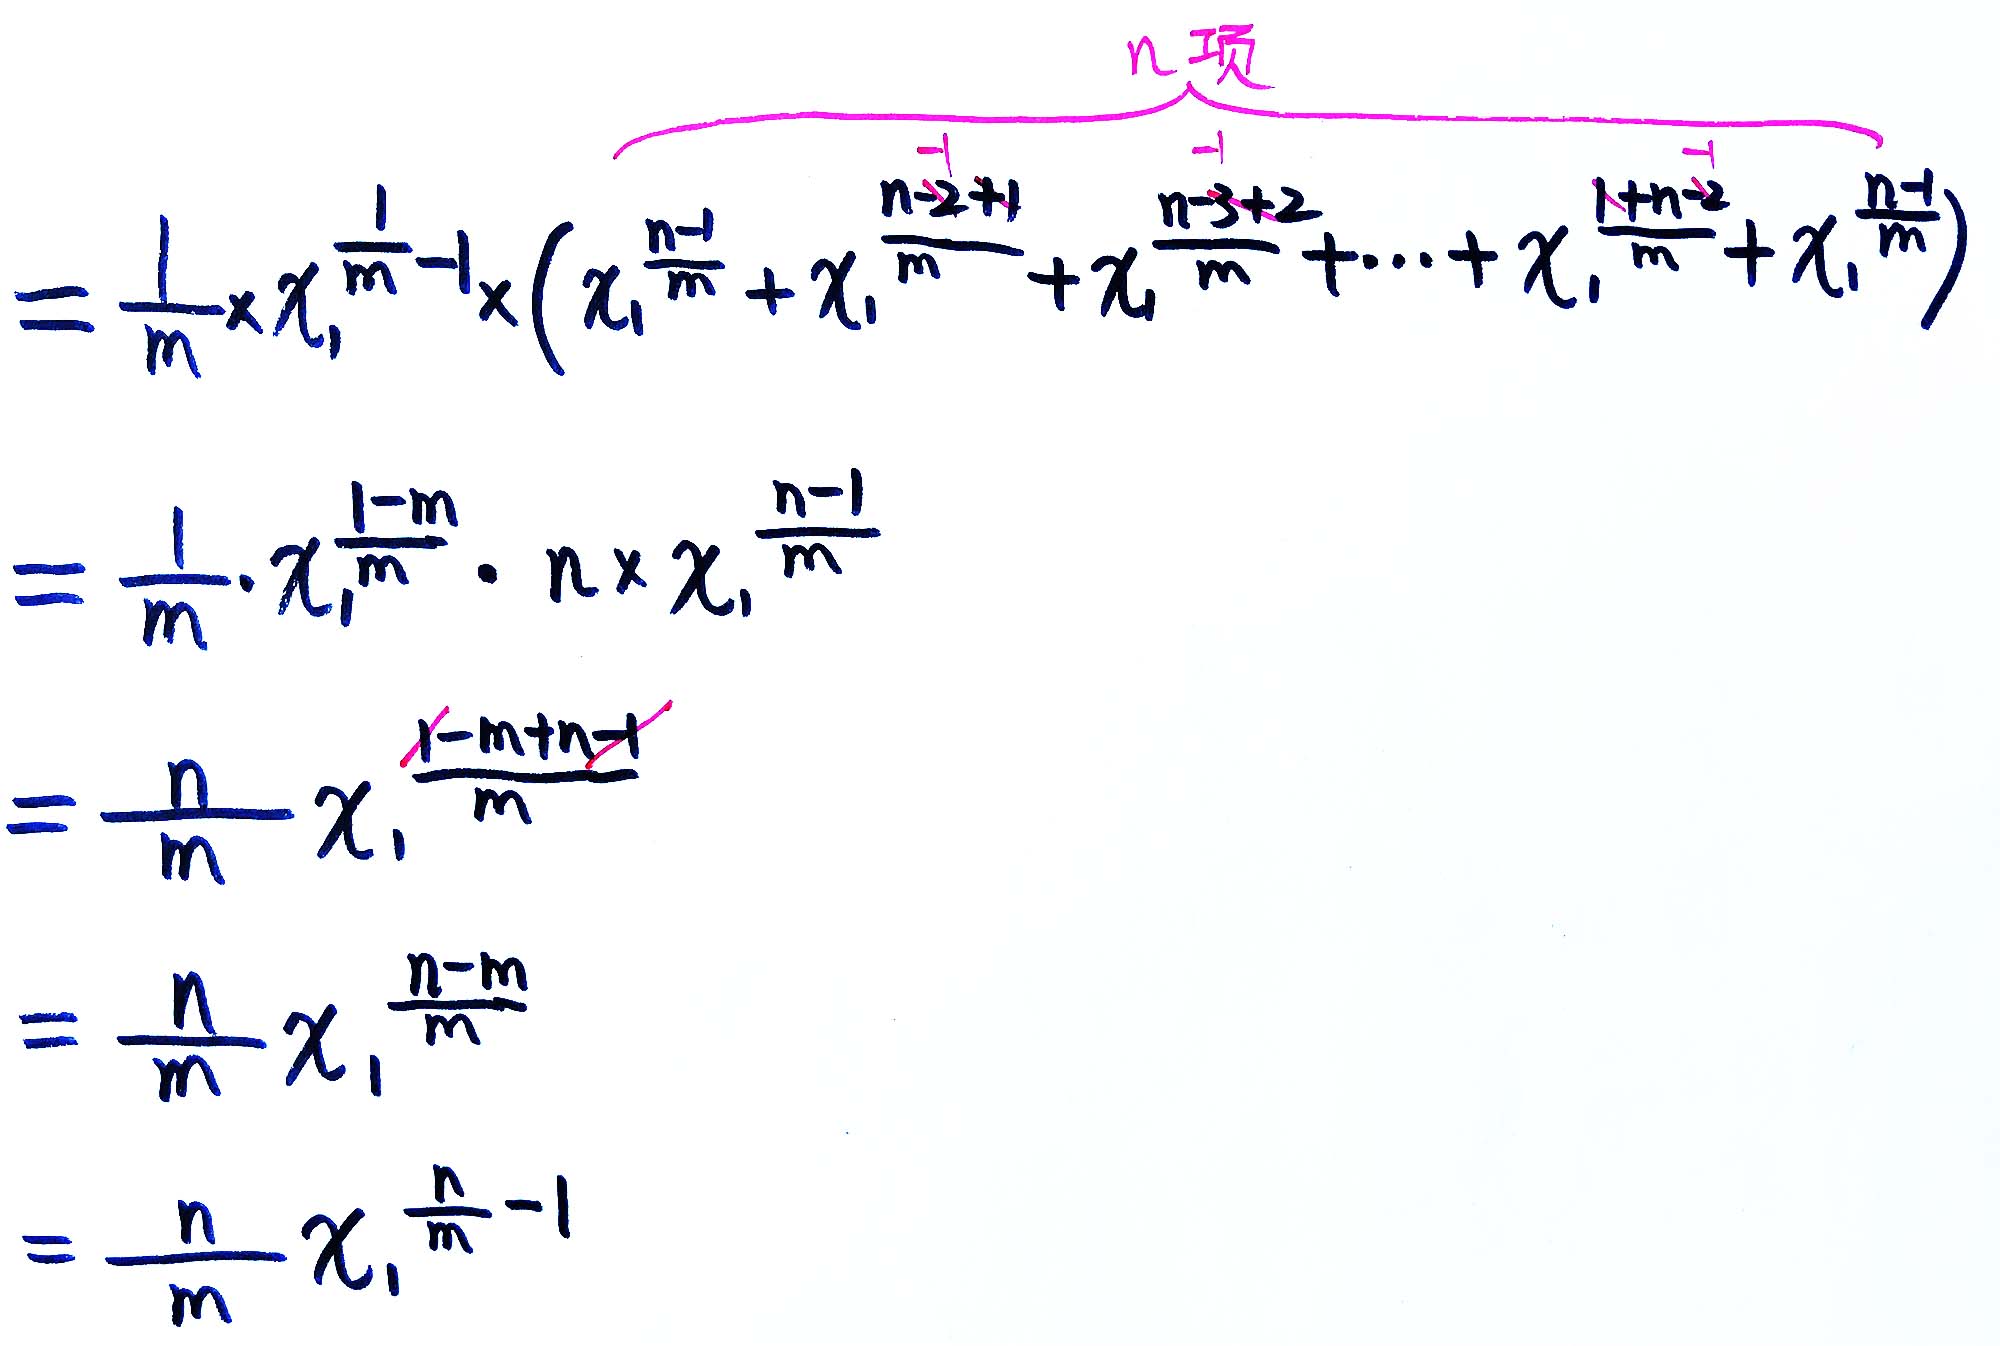 n项
-1 -1 -1
= \frac{1}{m} × x_1^{\frac{1}{m}-1} × ( x_1^{\frac{n-1}{m}} + x_1^{\frac{n-2+1}{m}} + x_1^{\frac{n-3+2}{m}} + ⋯ + x_1^{\frac{1+n-2}{m}} + x_1^{\frac{n-1}{m}} )
= \frac{1}{m} · x_1^{\frac{1-m}{m}} · n × x_1^{\frac{n-1}{m}}
= \frac{n}{m} x_1^{\frac{1-m+n-1}{m}}
= \frac{n}{m} x_1^{\frac{n-m}{m}}
= \frac{n}{m} x_1^{\frac{n}{m}-1}